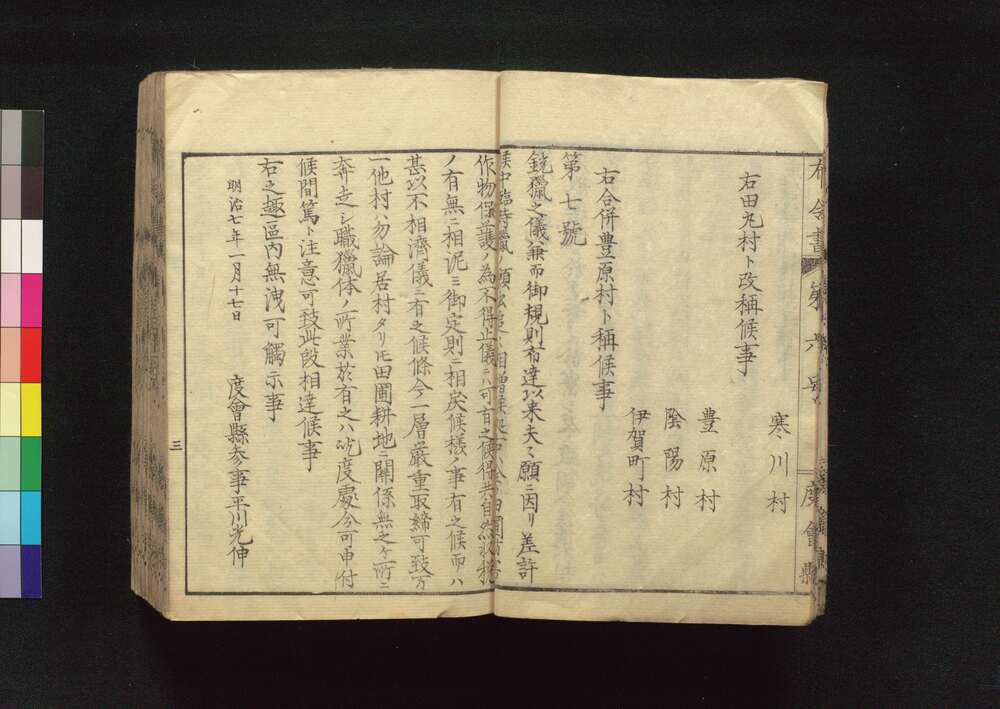 布令書 第六號 度會縣
寒川村
右田丸村ト改稱候事
豊原村
陰陽村
伊賀町村
右合併豊原村ト稱候事
第七號
銃獵之儀兼而御規則布達以来夫々願ニ因リ差許
候中臨時獵ノ願
作物保護ノ為不得止儀ハ可有之候得共自然
ノ有無ニ相泥ミ御定則ニ相戻候様ノ事有之候而ハ
甚以不相濟儀ニ有之候條今一層嚴重取締可致万
一他村ハ勿論居村タリ圧田圃耕地ニ關係無之ケ所ニ
奔走シ職獵体ノ所業於有之ハ屹度處分可申付
候間篤ト注意可致此段相達候事
右之趣區内無洩可觸示事
明治七年一月十七日
度會縣参事平川光伸
三